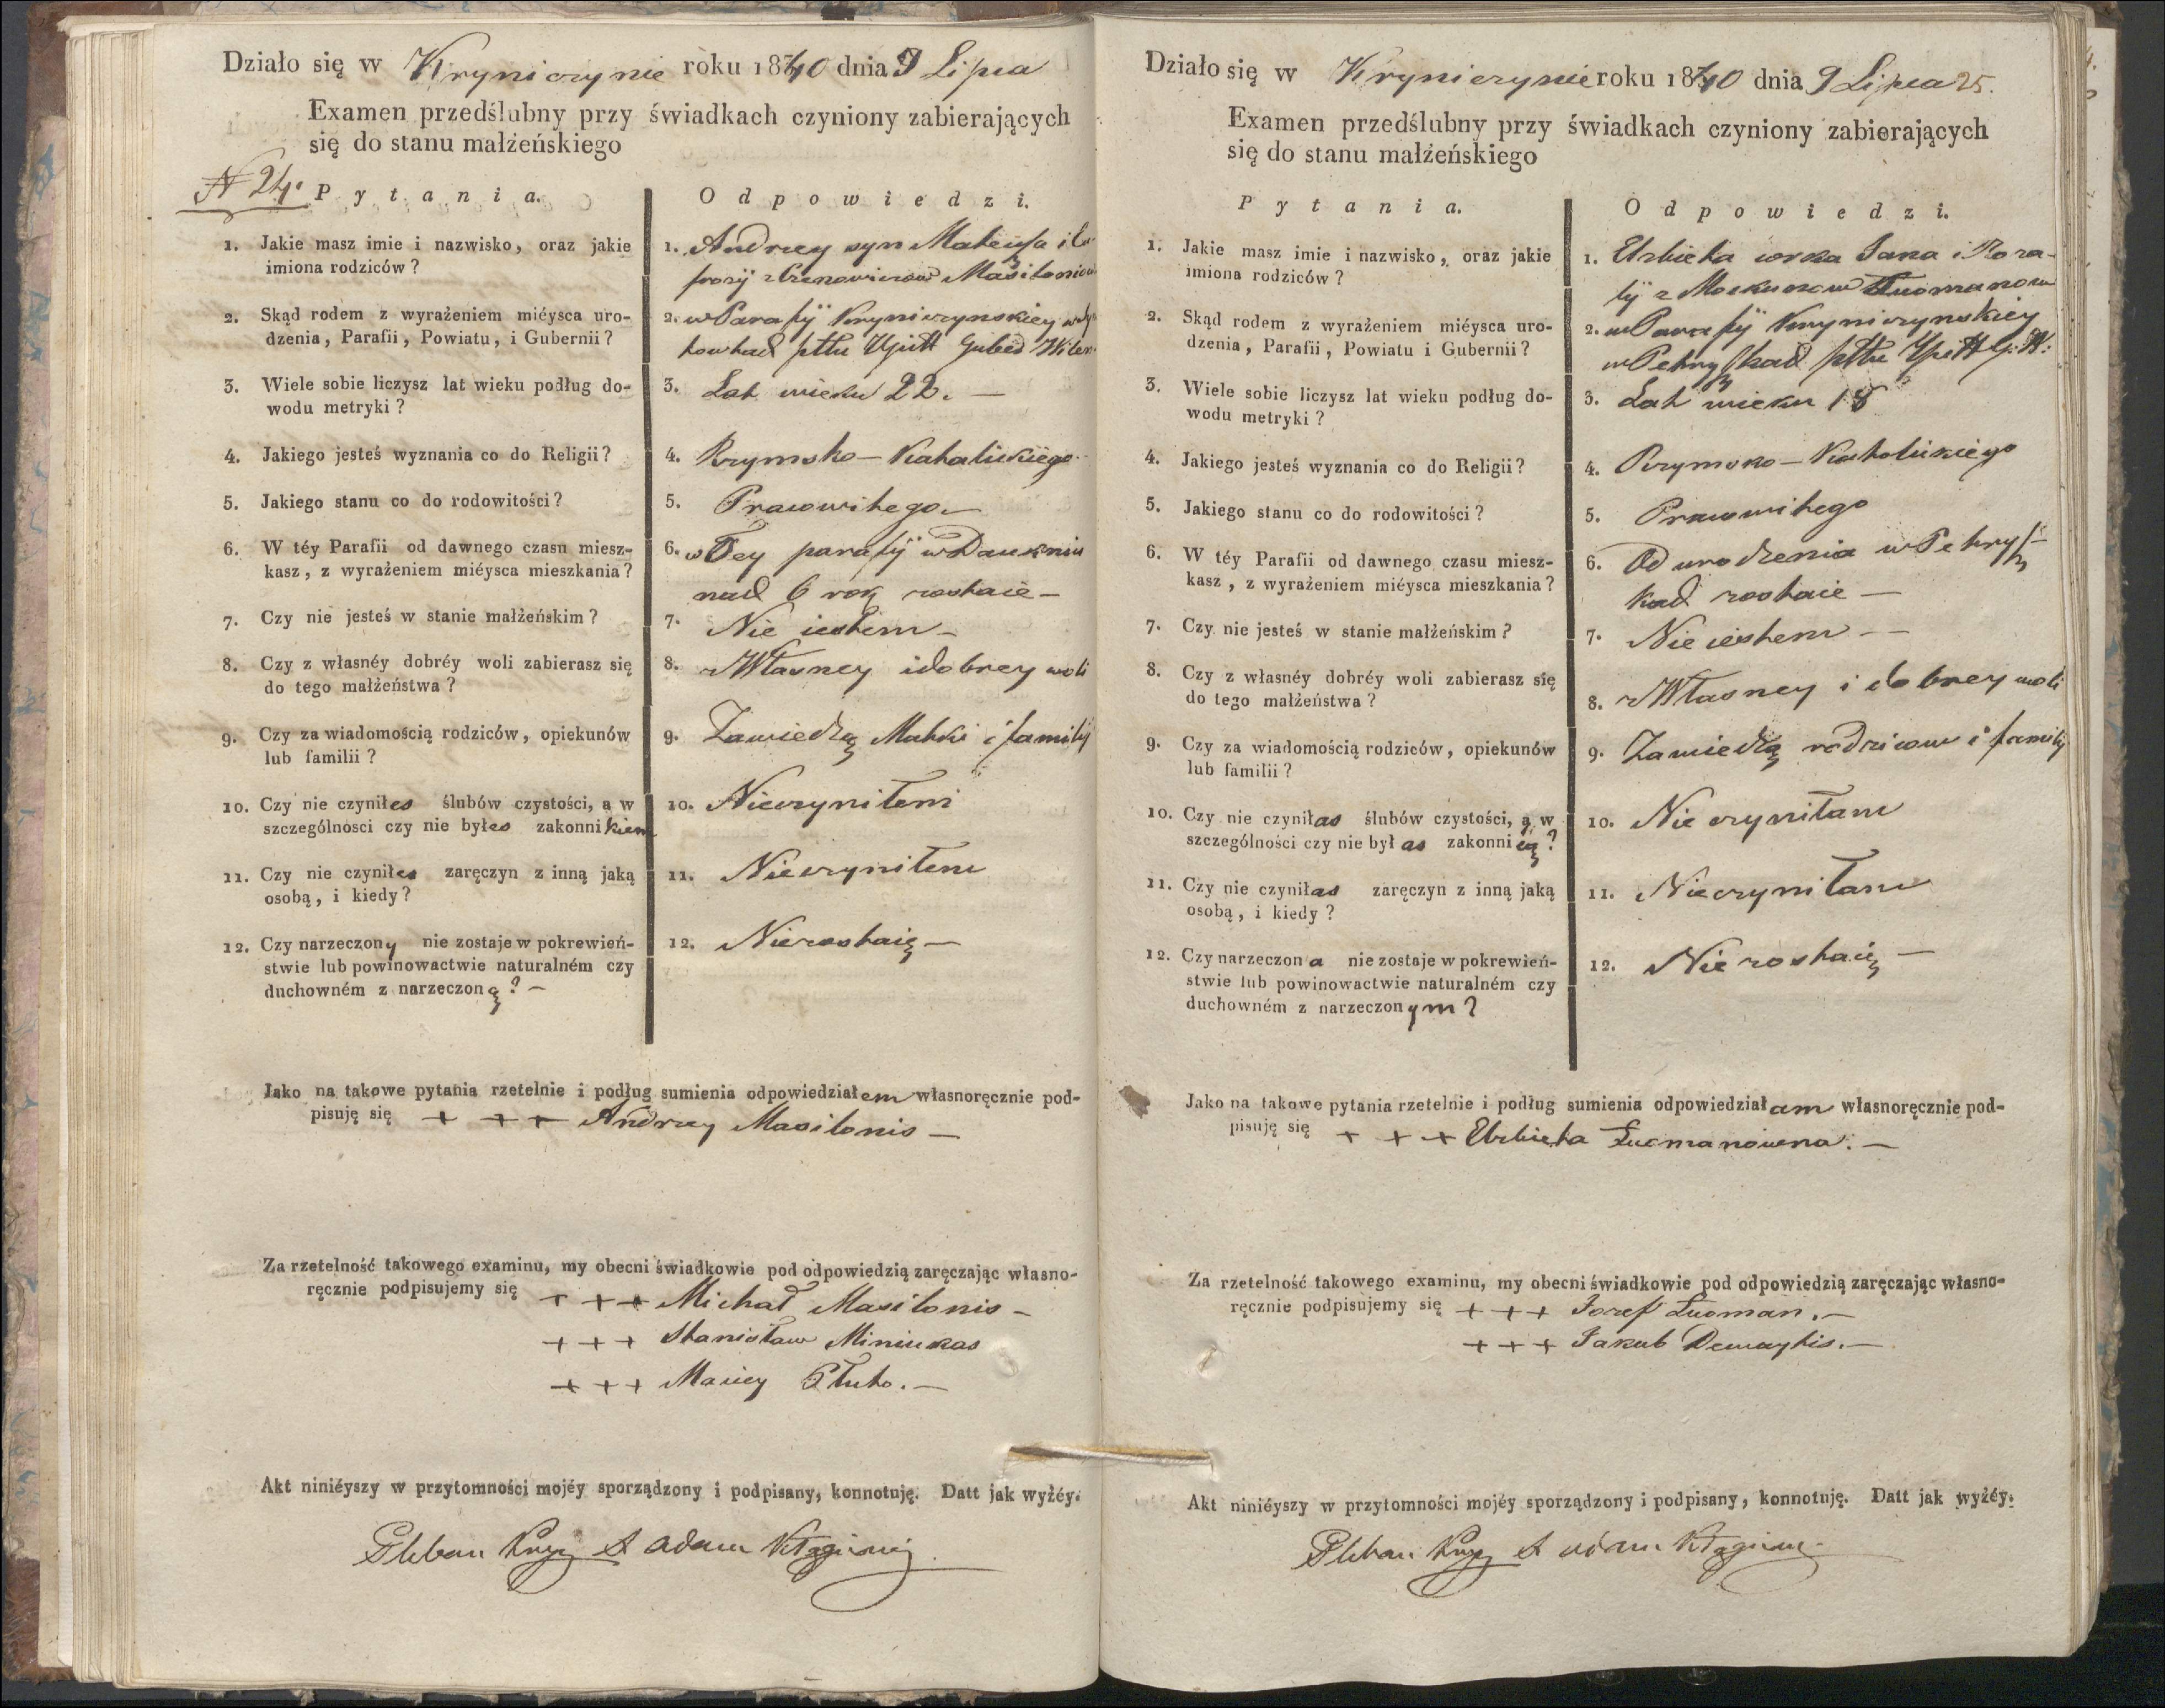 Działo się w Kryniczynie roku 1840 dnia 9 Lipca
Examen przedślubny przy świadkach czyniony zabierających
się do stanu małżeńskiego
N 24.
Pytania.
Odpowiedzi.
1. Jakie masz imie i nazwisko, oraz jakie
imiona rodziców?
1. Andrzey syn Mateusza i
Masilaniow
2. Skąd rodem z wyrażeniem miéysca uro-
dzenia, Parafii, Powiatu, i Gubernii?
2. w Parafij Kryniczynskiey
pttu Upitt Guber Wilen
3. Wiele sobie liczysz lat wieku podług do-
wodu metryki?
3. Lat wieku 22. —
4. Jakiego jesteś wyznania co do Religii?
4. Rzymsko — Katolickiego
5. Jakiego stanu co do rodowitości?
5. Prawowitego
6. W téy Parafii od dawnego czasu miesz-
kasz, z wyrażeniem miéysca mieszkania?
6. w Tey parafij w
nad 6 rok zostaie —
7. Czy nie jesteś w stanie małżeńskim?
7. Nie iestem —
8. Czy z własnéy dobréy woli zabierasz się
do tego małżeństwa?
8. z Własney i dobrey woli
9. Czy za wiadomością rodziców, opiekunów
lub familii?
9. Zawiedzą Matki i familij
10. Czy nie czyniłes ślubów czystości, a w
szczególności czy nie byłes zakonnikiem
10. Nieczyniłem
11. Czy nie czyniłes zaręczyn z inną jaką
osobą, i kiedy?
11. Nieczyniłem
12. Czy narzeczony nie zostaje w pokrewień-
stwie lub powinowactwie naturalném czy
duchowném z narzeczoną? —
12. Niezostaię —
Jako na takowe pytania rzetelnie i podług sumienia odpowiedziałem własnoręcznie pod-
pisuję się + + + Andrzey Masilonis —
Za rzetelność takowego examinu, my obecni świadkowie pod odpowiedzią zaręczając własno-
ręcznie podpisujemy się + + + Michał Masilonis —
+ + + Stanisław Miniukas
+ + + Maciey
Akt niniéyszy w przytomności mojéy sporządzony i podpisany, konnotuję. Datt jak wyżéy.
Pleban X Adam
Działo się w Kryniczynie roku 1840 dnia 9 Lipca 25.
Examen przedślubny przy świadkach czyniony zabierających
się do stanu małżeńskiego
Pytania.
Odpowiedzi.
1. Jakie masz imie i nazwisko, oraz jakie
imiona rodziców?
1. Elzbieta corka Jana i Roza-
lij z Łucmanow
2. Skąd rodem z wyrażeniem miéysca uro-
dzenia, Parafii, Powiatu i Gubernii?
2. w Parafij Kryniczynskiey
w Petryszkach pttu Upitt G: W:
3. Wiele sobie liczysz lat wieku podług do-
wodu metryki?
3. Lat wieku 18
4. Jakiego jesteś wyznania co do Religii?
4. Rzymsko — Katolickiego
5. Jakiego stanu co do rodowitości?
5. Prawowitego
6. W téy Parafii od dawnego czasu miesz-
kasz, z wyrażeniem miéysca mieszkania?
6. Od urodzenia w Petrysz-
kach zostaie —
7. Czy nie jesteś w stanie małżeńskim?
7. Nie iestem —
8. Czy z własnéy dobréy woli zabierasz się
do tego małżeństwa?
8. z Własney i dobrey woli
9. Czy za wiadomością rodziców, opiekunów
lub familii?
9. Zawiedzą rodzicow i familij
10. Czy nie czyniłas ślubów czystości, a w
szczególności czy nie byłas zakonnicą?
10. Nie czyniłam
11. Czy nie czyniłas zaręczyn z inną jaką
osobą, i kiedy?
11. Nieczyniłam
12. Czy narzeczona nie zostaje w pokrewień-
stwie lub powinowactwie naturalném czy
duchowném z narzeczonym?
12. Nie zostaię —
Jako na takowe pytania rzetelnie i podług sumienia odpowiedziałam własnoręcznie pod-
pisuję się + + + Elzbieta Łucmanowna. —
Za rzetelność takowego examinu, my obecni świadkowie pod odpowiedzią zaręczając własno-
ręcznie podpisujemy się + + + Jozef Łucman. —
+ + + Jakub Demaytis. —
Akt niniéyszy w przytomności mojéy sporządzony i podpisany, konnotuję. Datt jak wyżéy.
Pleban X Adam